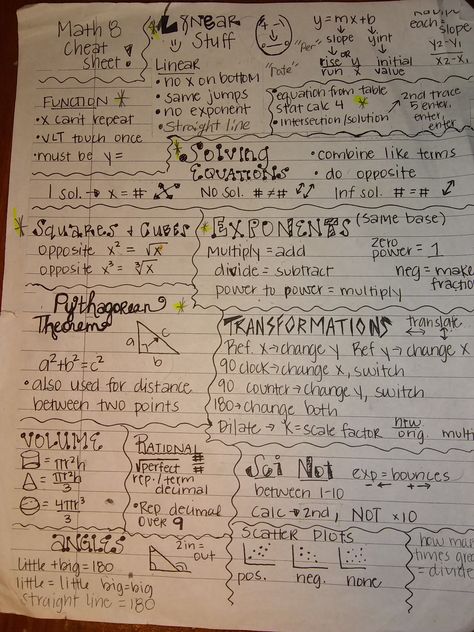 Math 8
Cheat
Sheet!
Linear
Stuff
Linear
• no x on bottom
• same jumps
• no exponent
• Straight line
y=mx+b
slope yint
or
"Per"
"Rate"
rise y initial
run x value
each = slope
y₂-y₁
x₂-x₁
• equation from table
stat calc 4
• intersection/solution
2nd trace
5 enter,
enter,
enter
FUNCTION
• x can't repeat
• VLT touch once
• must be y=
Solving
EQUATIONS
• combine like terms
• do opposite
1 sol. → x = # No sol. # ≠ # Inf sol. # = #
Squares & Cubes
opposite x² = √x
opposite x³ = ∛x
EXPONENTS (same base)
multiply = add
divide = subtract
power to power = multiply
zero
power = 1
neg = make
fraction
Pythagorean
Theorem
a c
b
a²+b²=c²
• also used for distance
between two points
TRANSFORMATIONS
translate
Ref. x → change y Ref y → change x
90 clock → change x, switch
90 counter → change y, switch
180 → change both
Dilate → K = scale factor new
orig.
VOLUME
= πr²h
= πr²h
3
= 4πr³
3
RATIONAL
√perfect #
#
rep./term
decimal
• Rep decimal
over 9
Sci Not
exp = bounces
← - + →
between 1-10
calc → 2nd, NOT x10
ANGLES
little + big = 180
little = little big = big
straight line = 180
2 in =
out
SCATTER PLOTS
pos. neg. none
how many
times
= divide